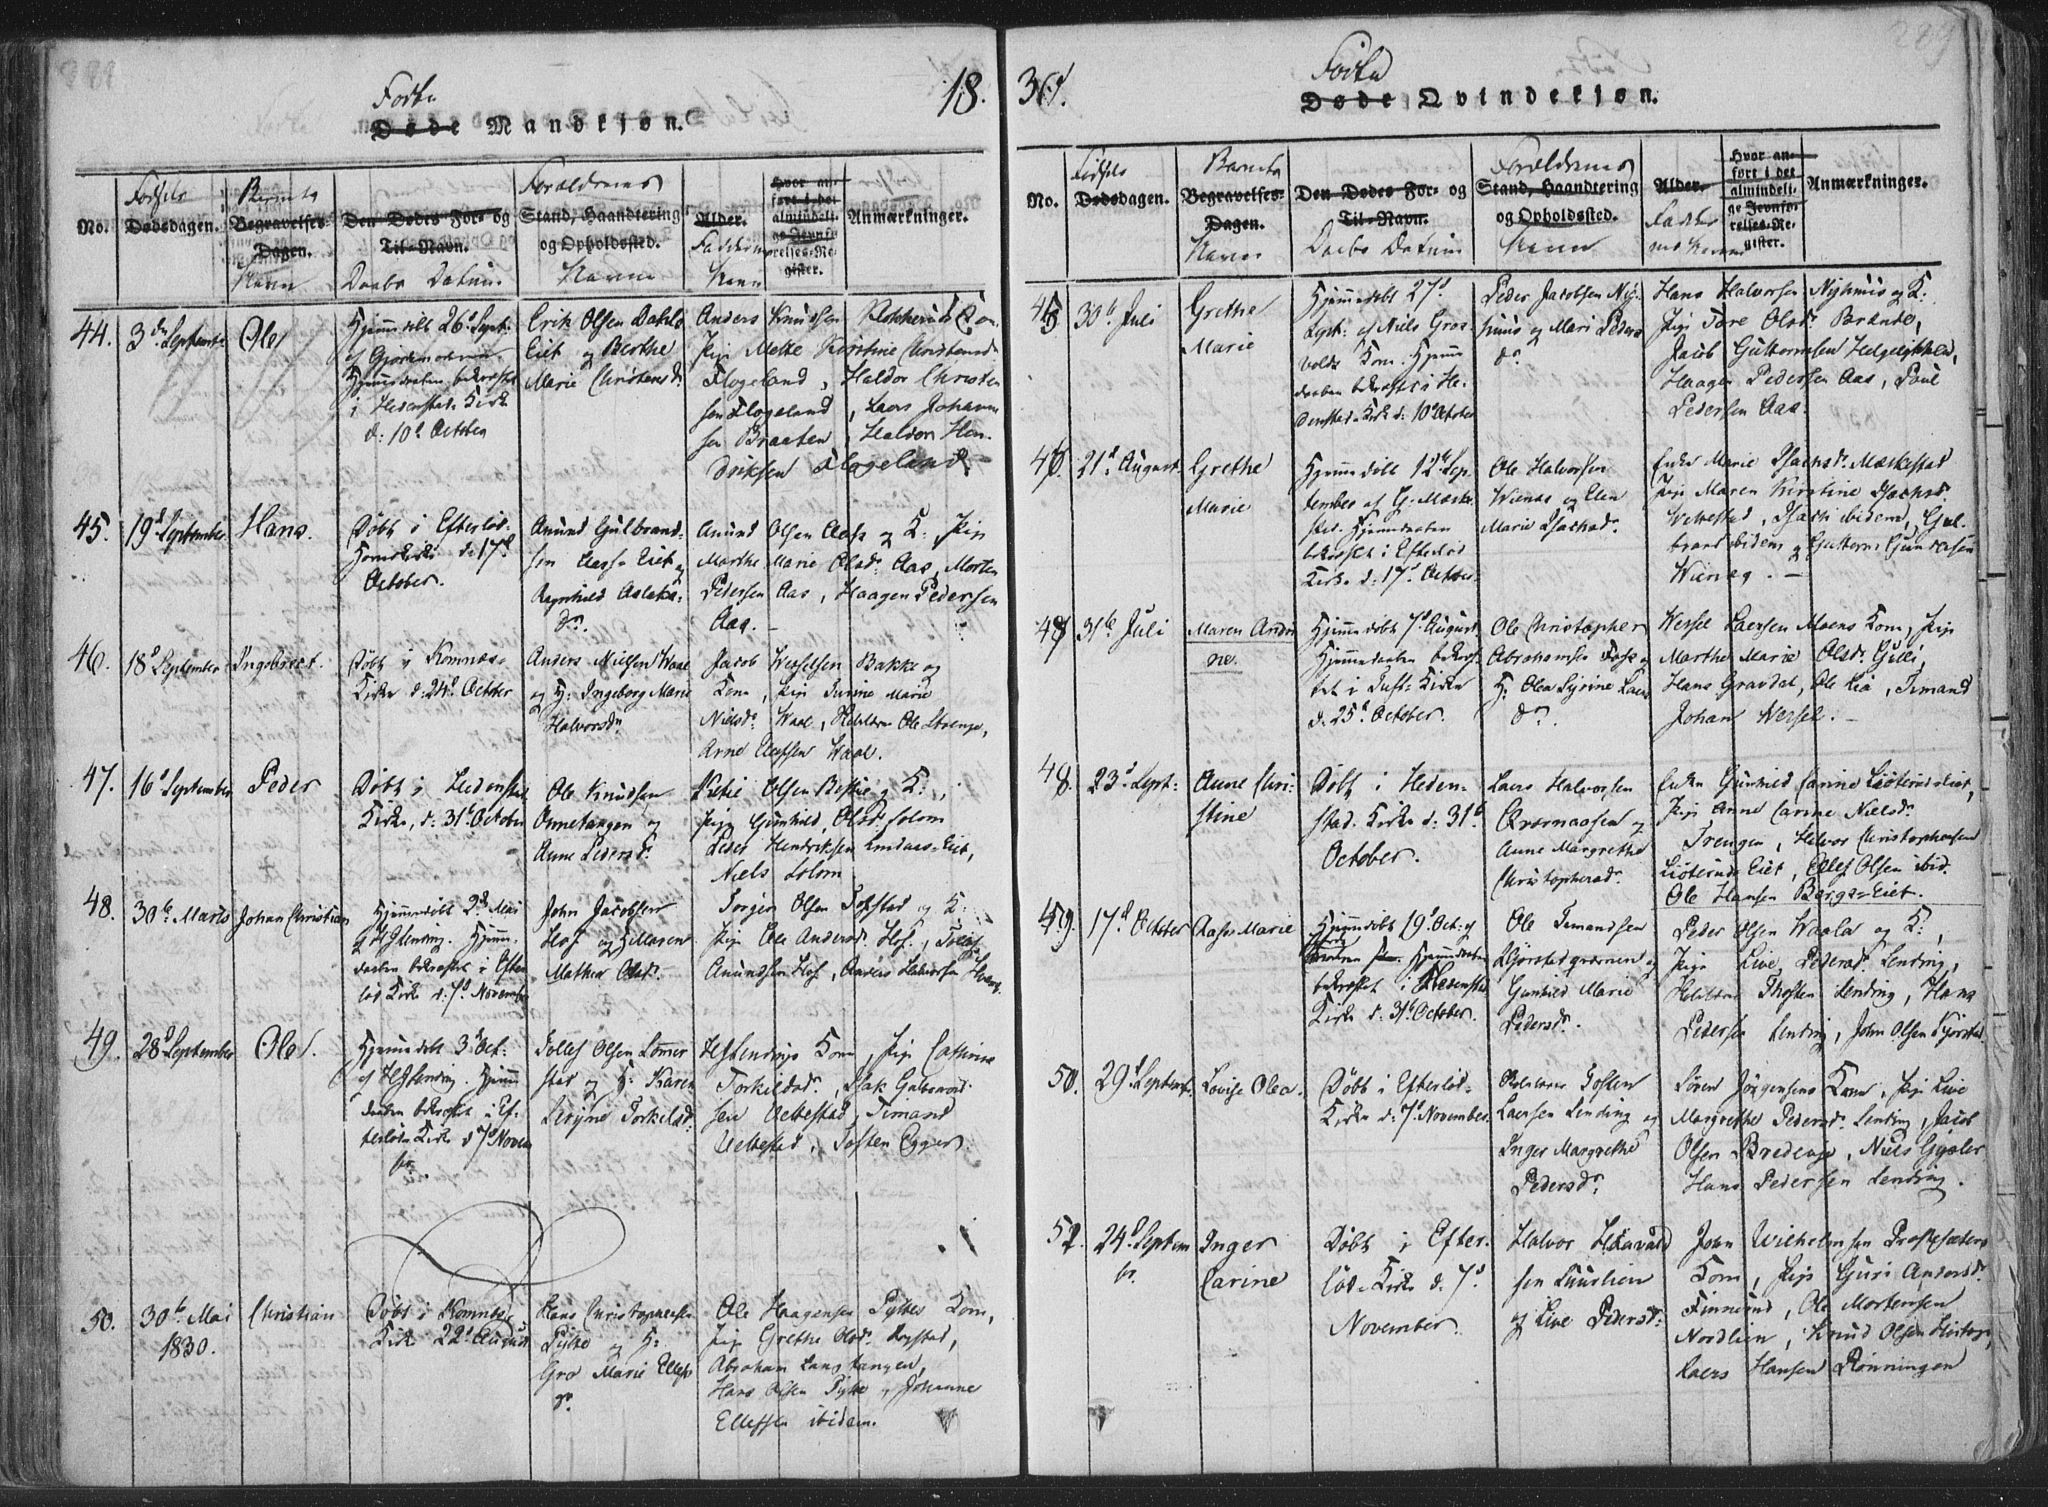 Fødte
18.
Døde Mandkjøn.
No.
Fødsels
Dødsdagen.
Barnets
Begravelses-
Dagen.
Navn
Den Dødes For- og
Til-Navn.
Daabs Datum
Forældrenes
Stand, Haandtering
og Opholdssted.
Navne
Alder.
Faddernes
Navne
Hvor an-
ført i det
almindeli-
ge Jevnfø-
relses-Re-
gister.
Anmærkninger.
44.
3die Septembr
Ole
Hjemmedøbt 26d Sept:
af
Hjemmedaaben bekræftet
i Hedenstads Kirke
d: 10d October
Erik Olsen Dahls
Eiet og Berthe
Marie Christensdr.
Anders Knudsen Klokkerud
Pige Mette Kirstine Christensdr
Flogeland, Haldor Christen
sen Flogeland, Laers Johann
sen Braaten, Haldor Hen-
driksen Flogeland.
45.
19d September
Hans.
Døbt i Efterløds
Kirke d: 17d
October.
Amund Gulbrand-
sen Aass-Eiet og
Ragnhild Aslaks-
dr.
Amund Olsen Aass og K: Pige
Marthe Marie Olsdr Aas, Morten
Pedersen Aas, Haagen Pedersen
Aas.
46.
18d September
Ingebreet.
Døbt i Komnæs-
Kirke d: 24d October
Anders Nielsen Waal
og H: Ingeborg Marie
Halvorsdr
Jacob Wesselsen Bakke og
Kone, Pige Marie
Nielsdr. Waal, Ole Strenge,
Arne Ellefsen Waal.
47.
16d September
Peder
Døbt i Hedenstad
Kirke, d: 31d October
Ole Knudsen
Onnetangen og
Anne Pedersdr.
Olsen Bestie og K:
Pige Gunhild Olsdr Solom
Peder Hendriksen Eiet,
Niels Solom.
48.
30te Marts
Johan Christian
Hjemmedøbt 2d Mai
af H: Lending. Hjemme-
daaben bekræftet i Efter
løds Kirke d: 7d November
John Jacobsen
Hof og H: Maren
Mathea Olsdr.
Torger Olsen og K:
Pige Ole Andersdr. Hof, Tollef
Amundsen Hof, Anders Halvorsen
49.
28d September
Ole.
Hjemmedøbt 3d Oct:
af H: Lending. Hjemme
daaben bekræftet i Ef-
terløds Kirke d 7d Novem
br.
Tollef Olsen Lomer
stad og H: Karen
Seryne Torkelsdr.
H: Lendings Kone, Pige Cathrine
Torkildsdr, Isak Gulbrand-
sen Vettestad, Timand
Vettestad, Tosten Egger
50.
30te Mai
1830.
Christian
Døbt i Komnæs
Kirke 22d August
Hans Christophersen
Tytte og H:
Gro Marie Ellefs
dr.
Ole Haagensen Tyttes Kone,
Pige Grethe Olsdr
Abraham Langtangen,
Hans Olsen Tytte, Johanne
Ellefsen ibidem.
289
Fødte
30.
Døde Qvindekjøn.
No.
Fødsels
Dødsdagen.
Barnets
Begravelses-
Dagen.
Navn
Den Dødes For- og
Til-Navn.
Daabs Datum
Forældrenes
Stand, Haandtering
og Opholdssted.
Navne
Alder.
Faddernes Navne
Hvor an-
ført i det
almindeli-
ge Jevnfø-
relses-Re-
gister.
Anmærkninger.
45
30te Juli
Grethe
Marie
Hjemmedøbt 27d
Sept: af Niels Gros-
volds Kone. Hjemme
daaben bekræftet i He-
denstad-Kirke d: 10d October
Peder Jacobsen Ny-
huus og Mari Peders
dr
Hans Halvorsen Nyhuus og K:
Pige Tore Olsdr Brænde,
Jacob Guttormsen
Haagen Pedersen Aas, Poul
Pedersen Aas.
46.
21d August.
Grethe
Marie
Hjemmedøbt 12te Sep-
tember af G: Mæske-
stad. Hjemmedaaben
bekræftet i Efterløds
Kirke d: 17d October
Ole Halvorsen
Wienæs og Elen
Marie Isachsdr.
Enke Marie Isachsdr. Mæskestad
Pige Maren Kirstine Isachsdr.
Wettestad, Isach ibidem, Gul-
brand ibidem og Guttorm Gundersen
Wienæs.
47
31te Juli
Maren Andri
ne.
Hjemmedøbt 7d August
Hjemmedaaben bekræf-
tet i Tuft-Kirke
d: 25d October.
Ole Christopher
Abrahamsen Fosse og
H: Olea Syrine Laers
dr.
Wessel Laersen Moens Kone, Pige
Marthe Marie Olsdr. Gulli,
Hans Gravdal, Ole Lia, Timand
Johan Wessel.
48.
23d Sept:
Anne Chri-
stine
Døbt i Heden-
stad Kirke d: 31te
October.
Laers Halvorsen
Qværnaasen og
Anne Margrethe
Christophersdr.
Enke Gunhild Carine Listerudeiet,
Pige Anne Carine Nielsdr
Trengen, Halvor Christophersen
Listeruds Eiet, Ellef Olsen ibid.
Ole Hansen Bergs-Eiet.
49.
17d October
Aase Marie
Hjemmedøbt 19d Oct: af
Hjemmedaaben
bekræftet i Hedenstad
Kirke d: 31te October.
Ole Timandsen
Gjørstadqværnen og
Gunhild Marie
Pedersdr.
Peder Olsen Waala og K:,
Pige Live Pedersdr. Lending,
Thosten Lending, Hans
Pedersen Lending, John Olsen Gjørstad.
50.
29d Septembr.
Lovise Olea.
Døbt i Efterløds-
Kirke d: 7d November.
Tosten
Laersen Lending og
Inger Margrethe
Pedersdr.
Søren Jørgensens Kone, Pige Live
Margrethe Pedersdr. Lending, Jacob
Olsen Bredenge, Niels Gysler
Hans Pedersen Lending.
52.
24d Septem
br.
Inger
Carine
Døbt i Efter-
løds-Kirke d. 7d
November.
Halvor Haavald
sen Kuurlien
og Live Pedersdr:
John Wilhelmsen
Kone, Pige Guri Andersdr.
Finnerud, Ole Mortensen
Nordlien, Knud Olsen
Laers Hansen Rønningen